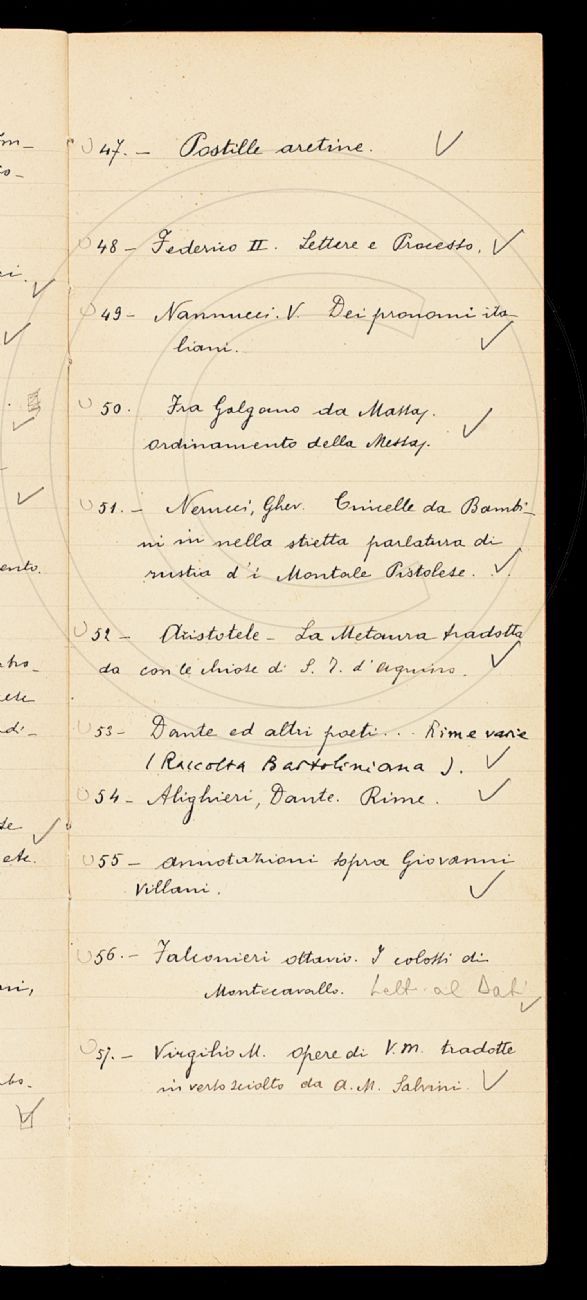 47. — Postille aretine.
48 — Federico II. Lettere e Processo.
49 — Nannucci. V. Dei pronomi ita-
liani.
50. Fra Galgano da Massa.
ordinamento della Messa.
51. — Nerucci, Gher. Cincelle da Bambi-
ni in nella stietta parlatura di
rustia d'i Montale Pistolese.
52 — Aristotele — La Metaura tradotta
da con le chiose di S. T. d'Aquino.
53 — Dante ed altri poeti... Rime varie
(Raccolta Bartoliniana).
54 — Alighieri, Dante. Rime.
55 — annotazioni sopra Giovanni
Villani.
56. — Falconieri Ottavio. I colossi di
Montecavallo. Lett. al Dati
57. — Virgilio M. opere di V. M. tradotte
in verso sciolto da A. M. Salvini.